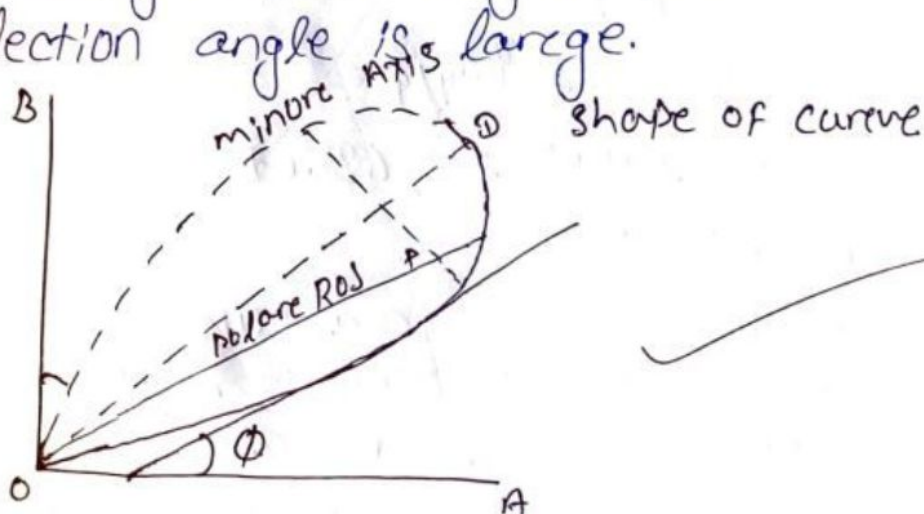 lection angle is larege.
B
minore AXIS
D
shape of cureve
P
polare ROS
Φ
O
A